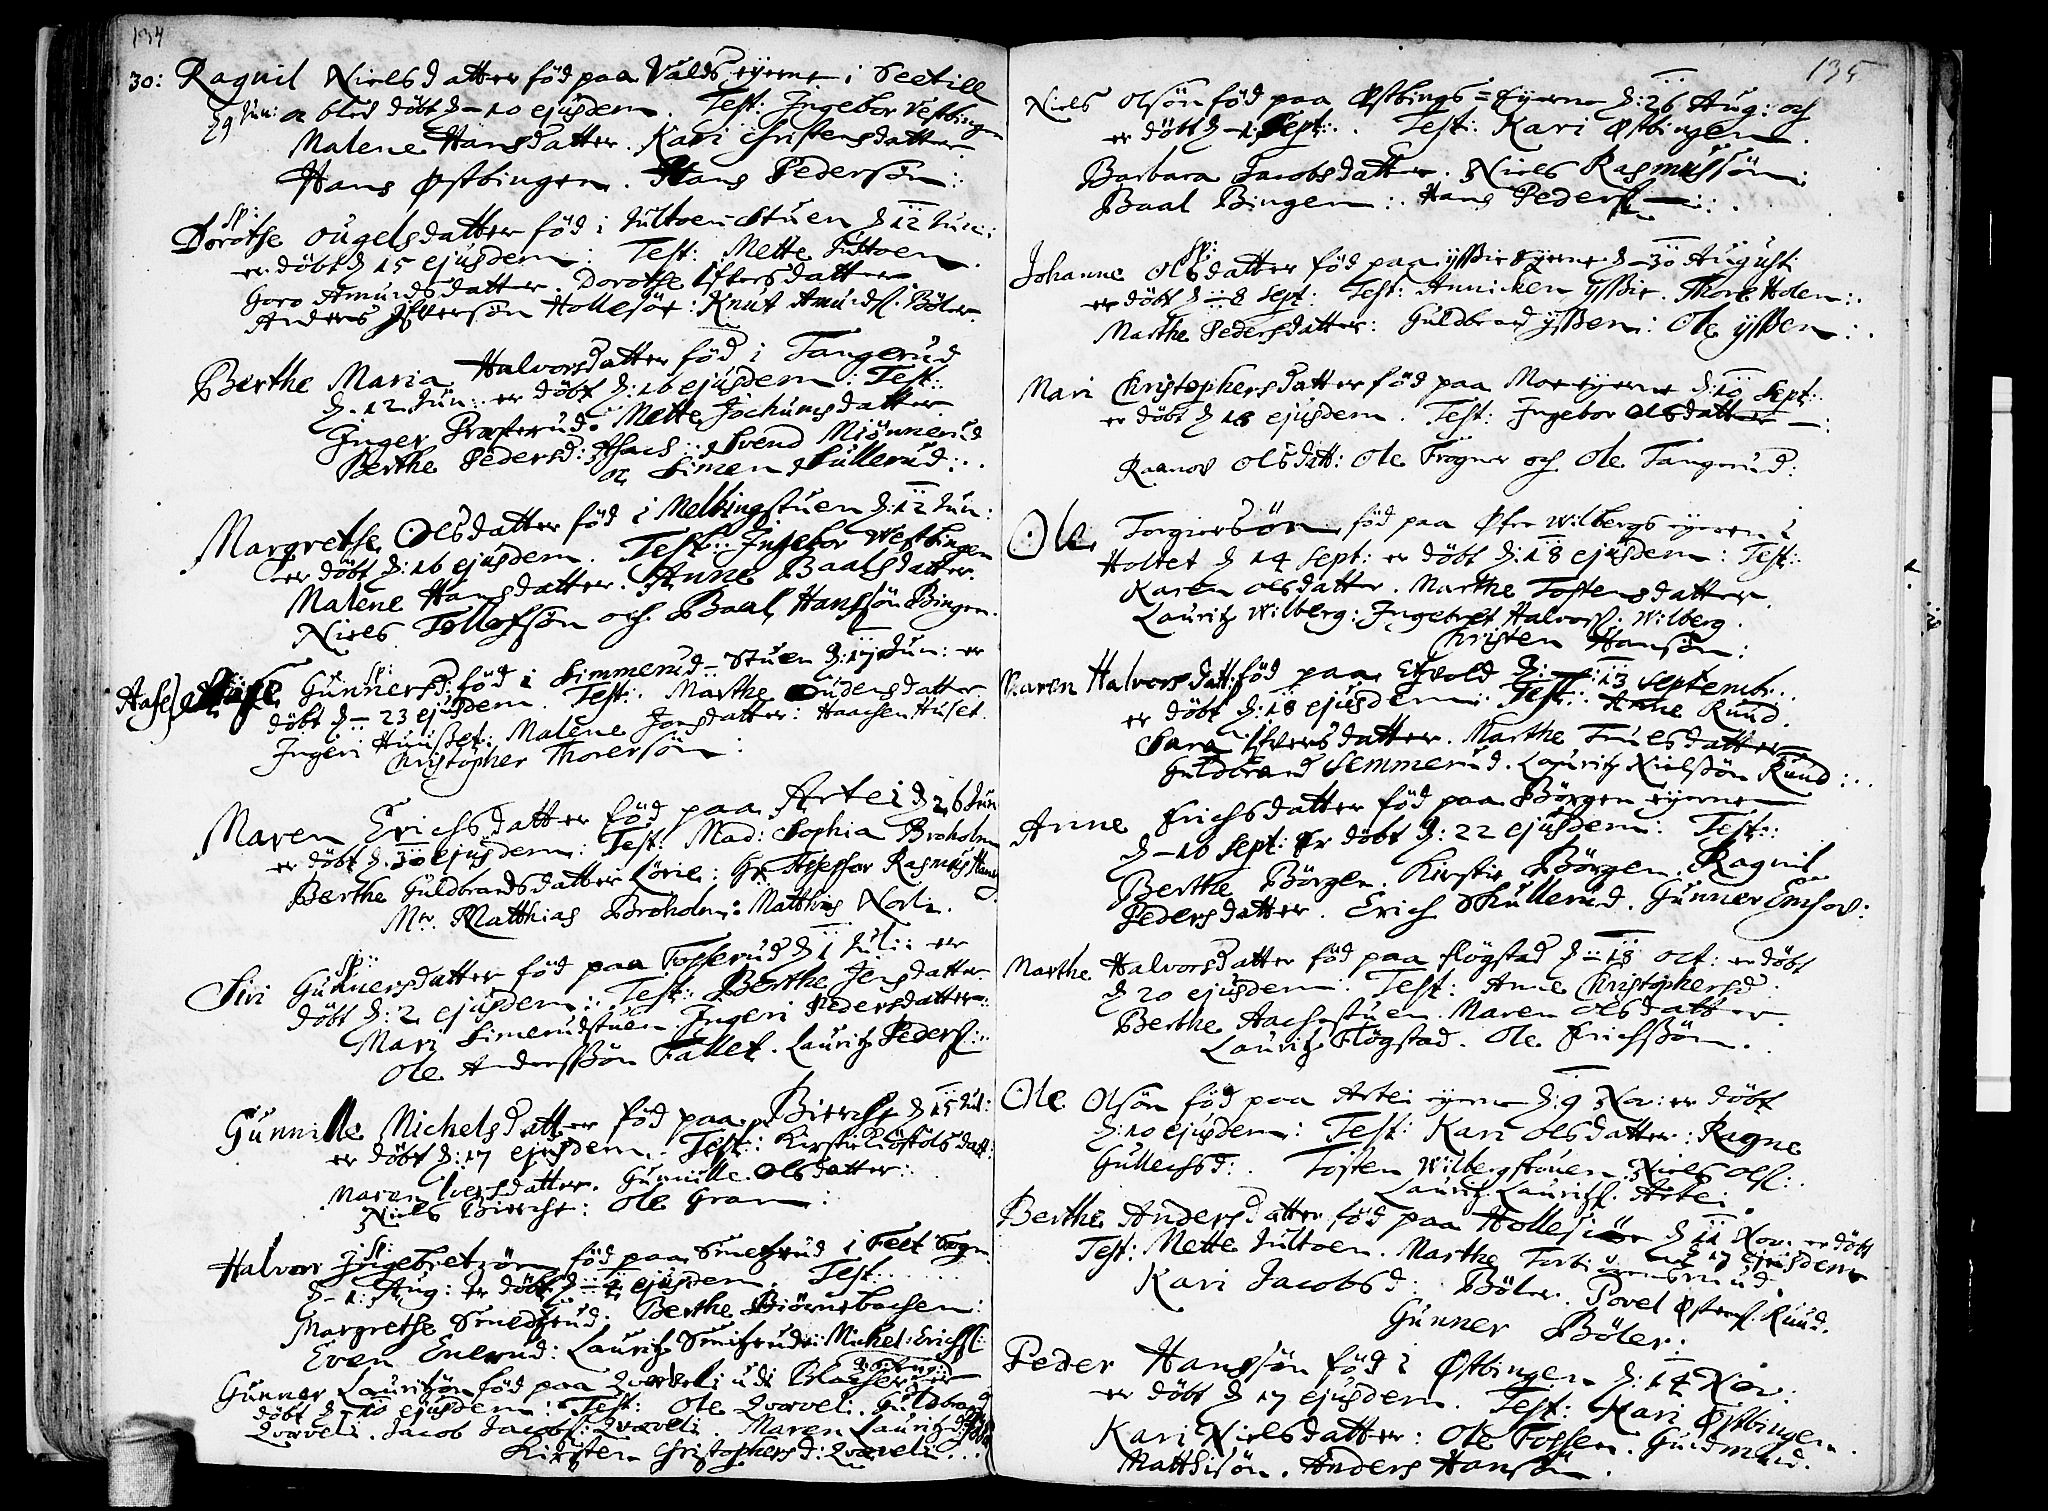 134
30: Ragnil Nielsdatter föd paa Valds eyerne i Seetill
29 Jun: er bled döbt d-10 ejusdem. Test: Jngebor Vestbingen
Malene Hansdatter. Kari Christensdatter
Hans Østbingen. Hans Pedersön:
sp:
Dorothe Ougelsdatter föd i Jultoen Stuen d 12 Jun:
er döbt d 15 ejusdem: Test: Mette Jultoen.
Goro Amundsdatter. Dorothe Ifversdatter
Anders Ifversön Hollesöe: Knut Amundss. Böler
Berthe Maria Halvorsdatter föd i Tangerud
d. 12 Jun: er döbt d: 16 ejusdem: Test:
Jnger Præsterud. Mette Jochumsdatter
Berthe Pedersd: Svend Miönnerud
oc Simen Skullerud:.
Margrethe Olsdatter föd i Melbingstuen d: 12 Jun:
er döbt d: 16 ejusdem. Test: Jngebor Westbingen
Malene Hansdatter. Anne Baalsdatter.
Niels Tollefsön och Baal Hanssön Bingen.
sp:
Aase Gunnersd: föd i Simmerud-Stuen d: 19 Jun: er
döbt d- 23 ejusdem. Test: Marthe Oudensdatter
Jngeri Huusset: Malene Jonsdatter: Haachen Huset.
Christopher Thorersön:
Maren Erichsdatter föd paa Artei d 26 Jun
er döbt d. 30 ejusdem: Test: Mad: Sophia Broholm
Berthe Guldbrandsdatter Lörie: Hr Assessor Rasmus Hans
Mr. Matthias Broholm: Matthis Nordi.
sp:
Siri Gunnersdatter föd paa Fosserud d 1 Juli: er
döbt d: 2 ejusdem: Test: Berthe Jensdatter
Mari Simerudstuen Jngeri Pedersdatter:
Ole Anderssön Fallet. Lauritz Peders:
Gunnille Michelsdatter föd paa Bierche d 15 Jul:
er döbt d: 17 ejusdem. Test: Kirsti Kiöstolsdatt:
Maren Iversdatter. Gunnille Olsdatter:
Niels Bierche: Ole Gram:
sp:
Halvor Jngebretzön föd paa Smedsrud i Feet Sogn
d- 1: Aug: er döbt d- 4 ejusdem. Test:
Margrethe Smedsrud. Berthe Biörnebachen:
Even Enerud: Lauritz Smitsrud: Michel Erichs:
Gunner Lauritzön föd paa Qværneli udi Blacher
döbt d- 10 ejusdem: Test: Ole Qværeli. Guldbrand
Qværeli. Jacob Jacobs: Qværeli. Maren Lauritzd:
Kirsten Christophersd: Qværeli.
135
Niels Olsön föd paa Østbings=Eyerne d: 26 Aug: och
er döbt d- 1 Sept:. Test: Kari Østbingen.
Barbara Jacobsdatter. Niels Rasmussön:
Baal Bingen: Hans Peders:.
sp:
Johanne Olsdatter föd paa ysssie eyerne d- 30 Augusti
er döbt d- 8 Sept: Test: Annichen yssie. Thore Holen:
Marthe Pedersdatter: Guldbrand yssen: Ole yssen:.
Mari Christophersdatter föd paa Moe eyerne d: 10 Sept:
er döbt d 18 ejusdem. Test: Jngebor Olsdatter —:
Raanov Olsdatt: Ole Frogner och Ole Tangerud:
Ole Torgiersön föd paa Øfre Wilbergs eyeren i
Holtet d 14 Sept: er döbt d: 18 ejusdem: Test:
Karen Olsdatter. Marthe Tostensdatter.
Lauritz Wilberg: Jngebret Halvorss. Wilberg.
Christen Hansön:
Maren Halvorsdatt: föd paa Etzold d: 13 Septemb:
er döbt d: 18 ejusdem: Test: Anne Ruud.
Sara Ifversdatter. Marthe Truelsdatter
Guldbrand Semmerud. Lauritz Nielssön Ruud:.
Anne Erichsdatter föd paa Börgen eyerne
d- 16 Sept: Er döbt d: 22 ejusdem: Test:
Berthe Börgen. Kirstie Börgen. Ragnil
Pedersdatter. Erich Skullerud. Gunner Emhov:
Marthe Halvorsdatter föd paa Flögstad d- 18 oct: er döbt
d 20 ejusdem. Test: Anne Christophersd:
Berthe Aachestuen. Maren Olsdatter.
Lauritz Flögstad. Ole Erichssön.
Ole Olsön föd paa Artei eyerne d: 9 Nov: er döbt
d: 10 ejusdem: Test: Kari Olsdatter: Ragne
Gullechsd:. Tosten Wilbergstouen. Niels Ols:.
Lauritz Lauritzs. Artei.
Berthe Andersdatter föd paa Hollesiöe d 11 Nov: er döbt
d 17 ejusdem
Test: Mette Jultoen. Marthe Torbiörnsrud.
Kari Jacobsd: Böler. Povel Østens. Ruud.
Gunner Böler:
Peder Hanssön föd i Østbingen d: 14 Nov:
er döbt d 17 ejusdem. Test: Kari Østbingen.
Kari Nielsdatter: Ole Fossen. Gudmund.
Matthisön. Anders Hansön.